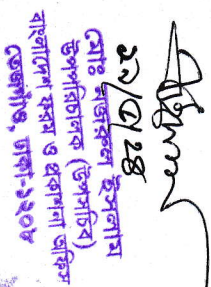 ২৯/৫/২৪
মোঃ নজরুল ইসলাম
উপপরিচালক (উপসচিব)
বাংলাদেশ ফরম ও প্রকাশনা অফিস
তেজগাঁও, ঢাকা-১২০৮